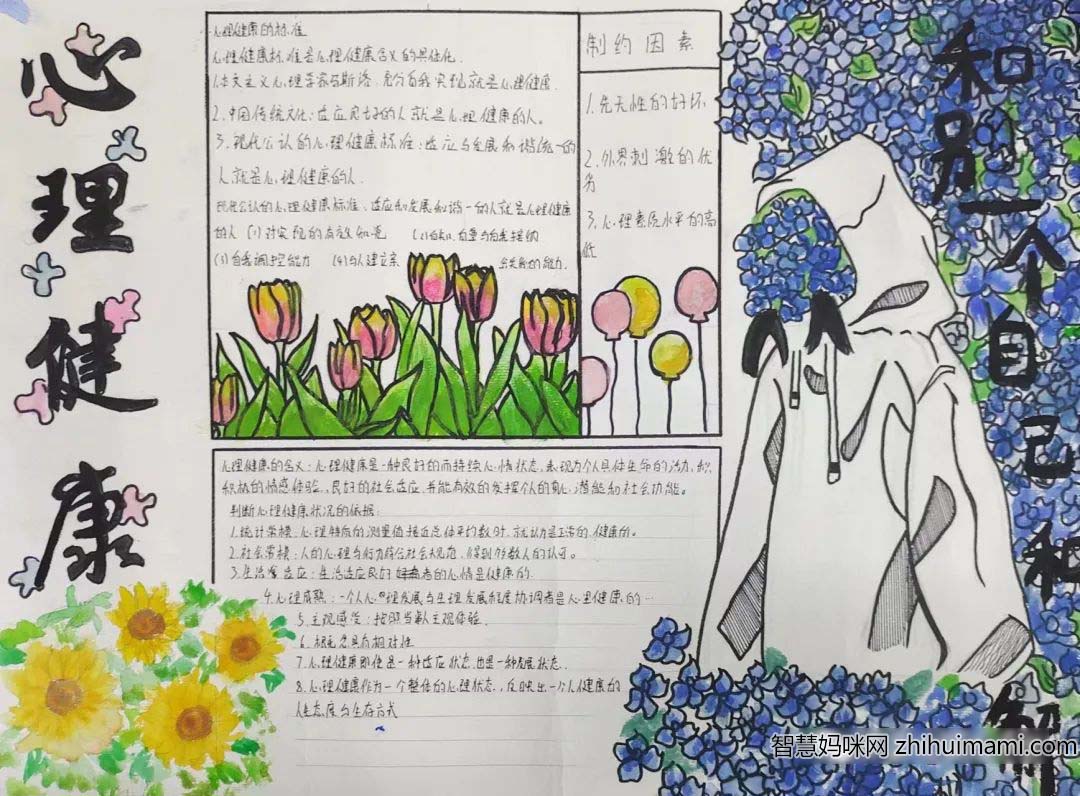 心理健康
心理健康的标准
心理健康标准是心理健康含义的具体化.
1.本文主义心理学家马斯洛:充分自我实现就是心理健康.
2.中国传统文化:适应良好的人就是心理健康的人。
3.现代公认的心理健康标准:适应与发展和谐统一的
人就是心理健康的人.
现代公认的心理健康标准、适应和发展和谐一的人就是心理健康
的人 (1)对实现的有效知觉 (2)自知、自尊与自我接纳
(3)自我调控能力 (4)与人建立亲 的能力.
制约因素
1.先天性的好坏
2.外界刺激的优
劣
3.心理素质水平的高
低
心理健康的含义:心理健康是一种良好的而持续心情状态,表现为个人具体生命的活力,积
积极的情感体验,良好的社会适应,并能有效的发挥个人的身心潜能和社会功能。
判断心理健康状况的依据:
1.统计常模:心理特质的测量值接近总体平均数时,就认为是正常的.健康的。
2.社会常模:人的心理与行为符合社会规范,得到多数人的认可。
3.生活适应:生活适应良好者的心情是健康的.
4.心理成熟:一个人心理发展与生理发展程度协调者是心里健康的…
5.主观感觉:按照当事人主观体验.
6.概念具有相对性
7.心理健康即使是一种适应状态,也是一种发展状态.
8.心理健康作为一个整体的心理状态,反映出一个人健康的
人生态度与生存方式
和另一个自己和解
智慧妈咪网 zhihuimami.com